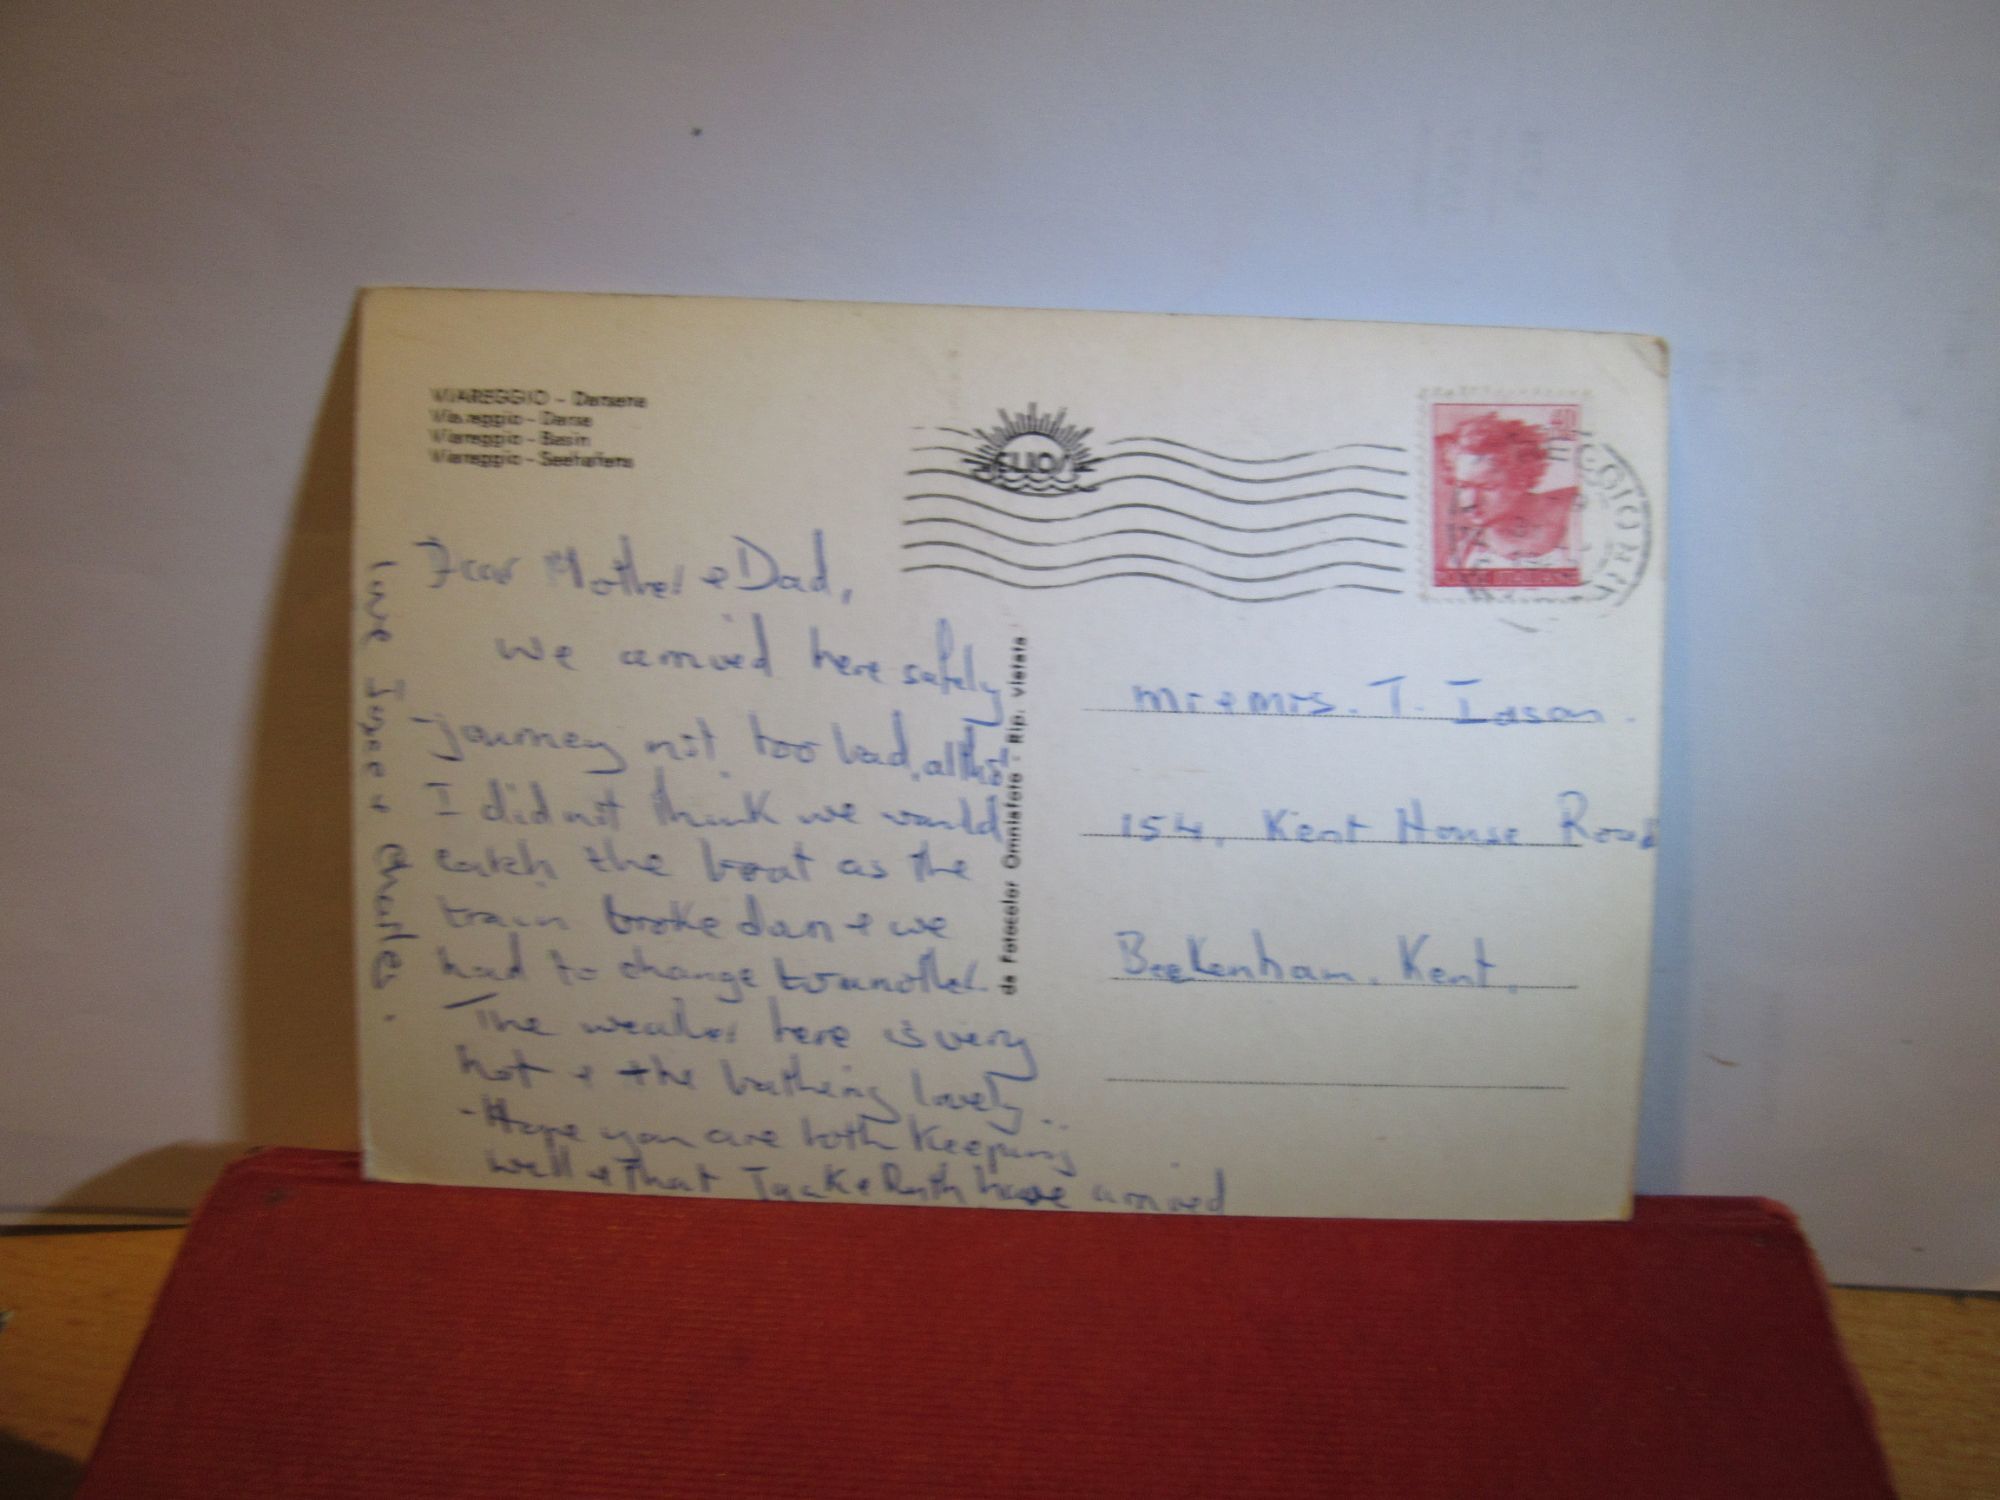 VIAREGGIO - Darsena
Viareggio - Darse
Viareggio - Basin
Viareggio - Seehafens
Dear Mother & Dad,
we arrived here safely
- journey not too bad, altho'
I did not think we would
catch the boat as the
train broke down & we
had to change to another.
The weather here is very
hot & the bathing lovely..
- Hope you are both keeping
well & that Jack & Ruth have arrived
love Joyce & Charles.
da Fotocolor Omniafoto - Rip. vietata
40
POSTE ITALIANE
Mr & Mrs. T.
154, Kent House Road
Beckenham. Kent.